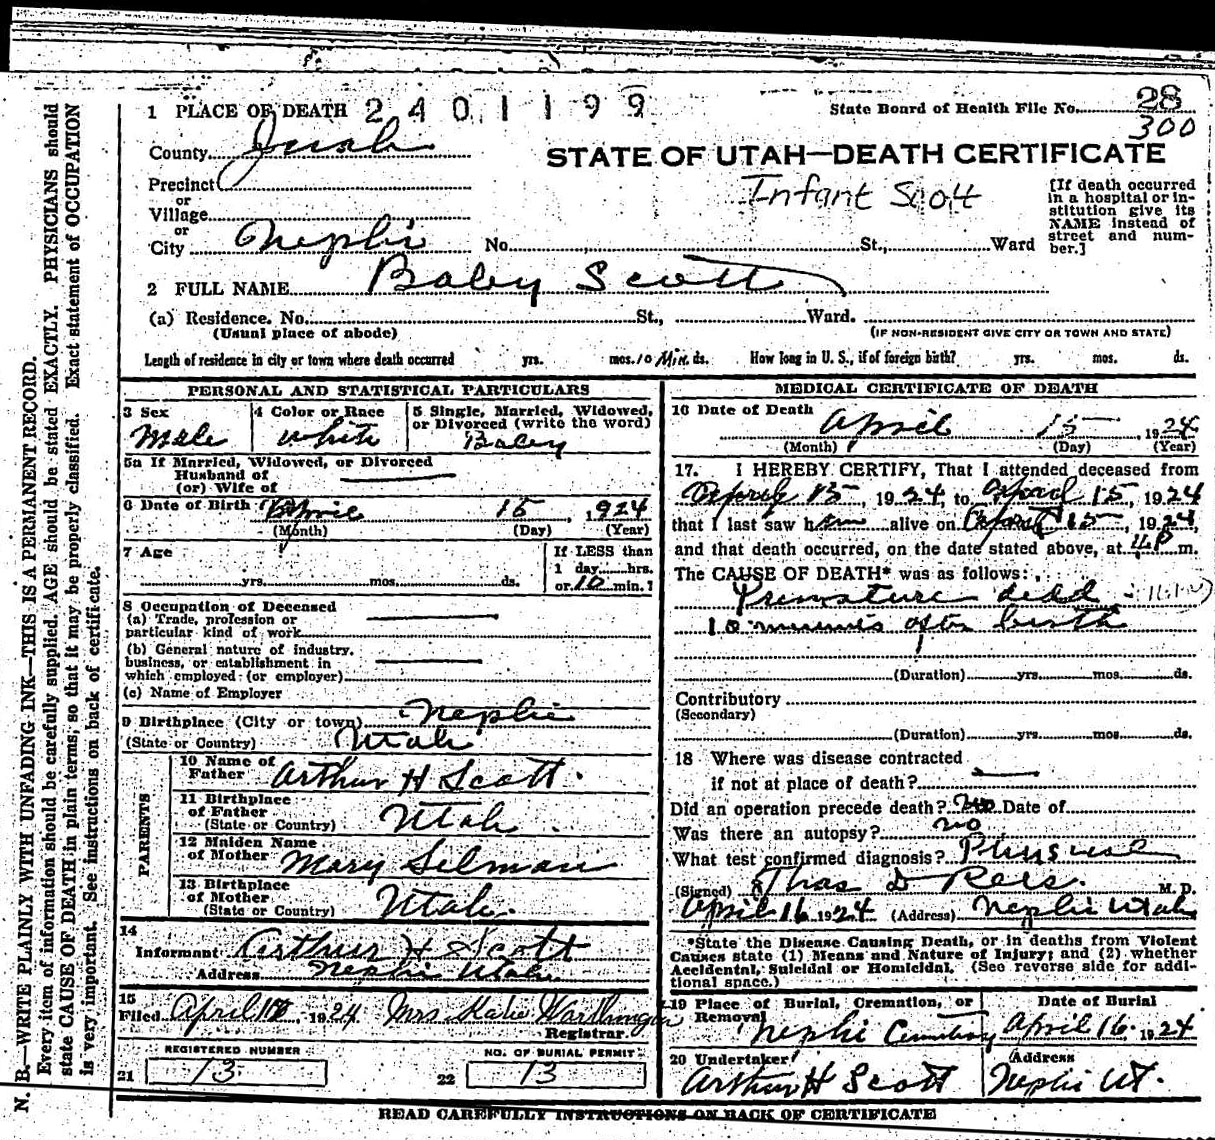 1 PLACE OF DEATH 2401199
State Board of Health File No. 28
300
County Juab
STATE OF UTAH—DEATH CERTIFICATE
Precinct
or
Village
or
City Nephi No. St., Ward
Infant Scott
[If death occurred
in a hospital or in-
stitution give its
NAME instead of
street and num-
ber.]
2 FULL NAME Baby Scott
(a) Residence. No. St., Ward.
(Usual place of abode) (IF NON-RESIDENT GIVE CITY OR TOWN AND STATE)
Length of residence in city or town where death occurred yrs. mos. 10 Min. ds. How long in U. S., if of foreign birth? yrs. mos. ds.
PERSONAL AND STATISTICAL PARTICULARS
3 Sex 4 Color or Race 5 Single, Married, Widowed,
or Divorced (write the word)
Male white Baby
5a If Married, Widowed, or Divorced
Husband of
(or) Wife of
6 Date of Birth 15 1924
(Month) (Day) (Year)
7 Age
yrs. mos. ds.
If LESS than
1 day hrs.
or 10 min.?
8 Occupation of Deceased
(a) Trade, profession or
particular kind of work
(b) General nature of industry,
business, or establishment in
which employed (or employer)
(c) Name of Employer
9 Birthplace (City or town) Nephi
(State or Country) Utah
PARENTS
10 Name of
Father Arthur H Scott.
11 Birthplace
of Father
(State or Country) Utah
12 Maiden Name
of Mother Mary Selman
13 Birthplace
of Mother
(State or Country) Utah.
14
Informant Arthur H Scott
Address Nephi Utah
15
Filed April 1924 Mrs
Registrar.
REGISTERED NUMBER NO. OF BURIAL PERMIT
21 13 22 13
MEDICAL CERTIFICATE OF DEATH
16 Date of Death April 15 1924
(Month) (Day) (Year)
17. I HEREBY CERTIFY, That I attended deceased from
April 15, 1924 to April 15, 1924
that I last saw him alive on April 15, 1924,
and that death occurred, on the date stated above, at 4 P m.
The CAUSE OF DEATH* was as follows:
Premature died
10 minutes after birth
(Duration) yrs. mos. ds.
Contributory
(Secondary)
(Duration) yrs. mos. ds.
18 Where was disease contracted
if not at place of death?
Did an operation precede death? no Date of
Was there an autopsy? no
What test confirmed diagnosis? Physical
(Signed) Thos D Rees. M. D.
April 16 1924 (Address) Nephi Utah
*State the Disease Causing Death, or in deaths from Violent
Causes state (1) Means and Nature of Injury; and (2) whether
Accidental, Suicidal or Homicidal. (See reverse side for addi-
tional space.)
19 Place of Burial, Cremation, or
Removal
Nephi Cemetery
Date of Burial
April 16, 1924
20 Undertaker
Arthur H Scott
Address
Nephi Ut.
READ CAREFULLY INSTRUCTIONS ON BACK OF CERTIFICATE
N. B.—WRITE PLAINLY WITH UNFADING INK—THIS IS A PERMANENT RECORD.
Every item of information should be carefully supplied. AGE should be stated EXACTLY. PHYSICIANS should
state CAUSE OF DEATH in plain terms, so that it may be properly classified. Exact statement of OCCUPATION
is very important. See instructions on back of certificate.